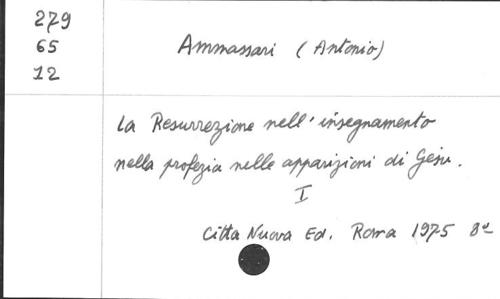 279
65
12
Ammassari (Antonio)
La Resurrezione nell'insegnamento
nella profezia nelle apparizioni di Gesu.
I
Citta Nuova Ed. Roma 1975 8º